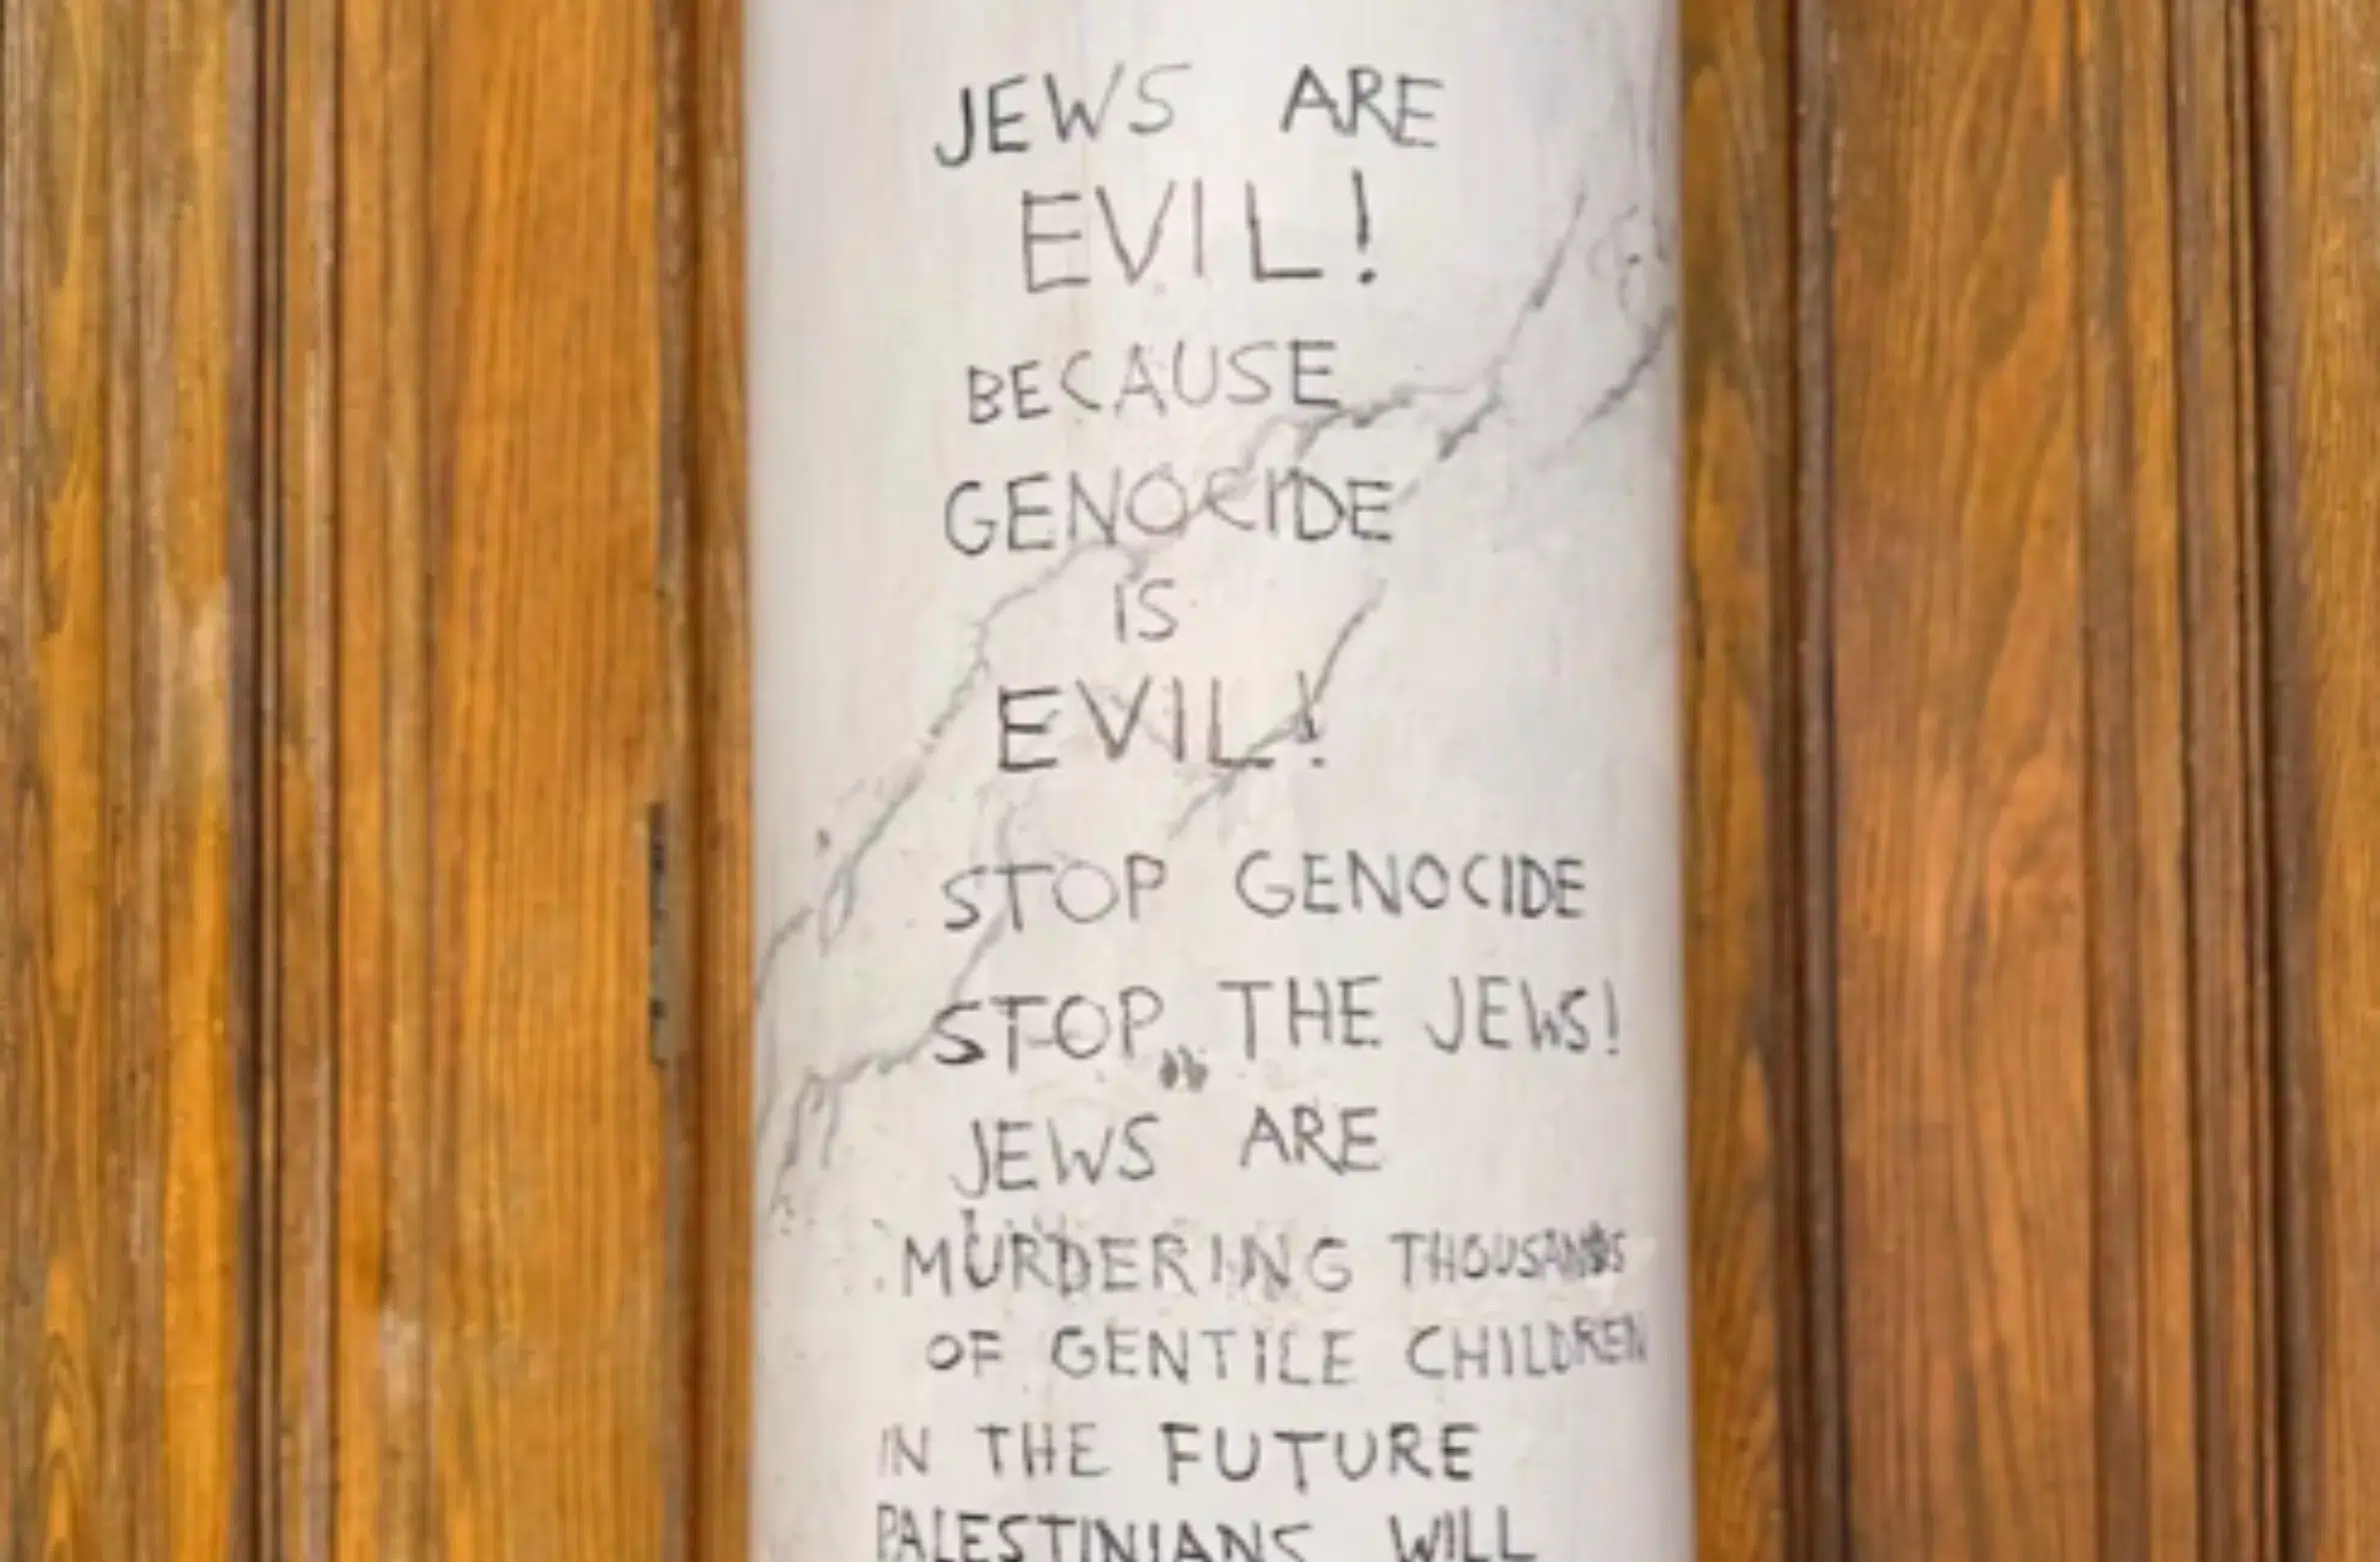 JEWS ARE
EVIL!
BECAUSE
GENOCIDE
IS
EVIL!
STOP GENOCIDE
STOP THE JEWS!
JEWS ARE
MURDERING THOUSANDS
OF GENTILE CHILDREN
IN THE FUTURE
PALESTINIANS WILL